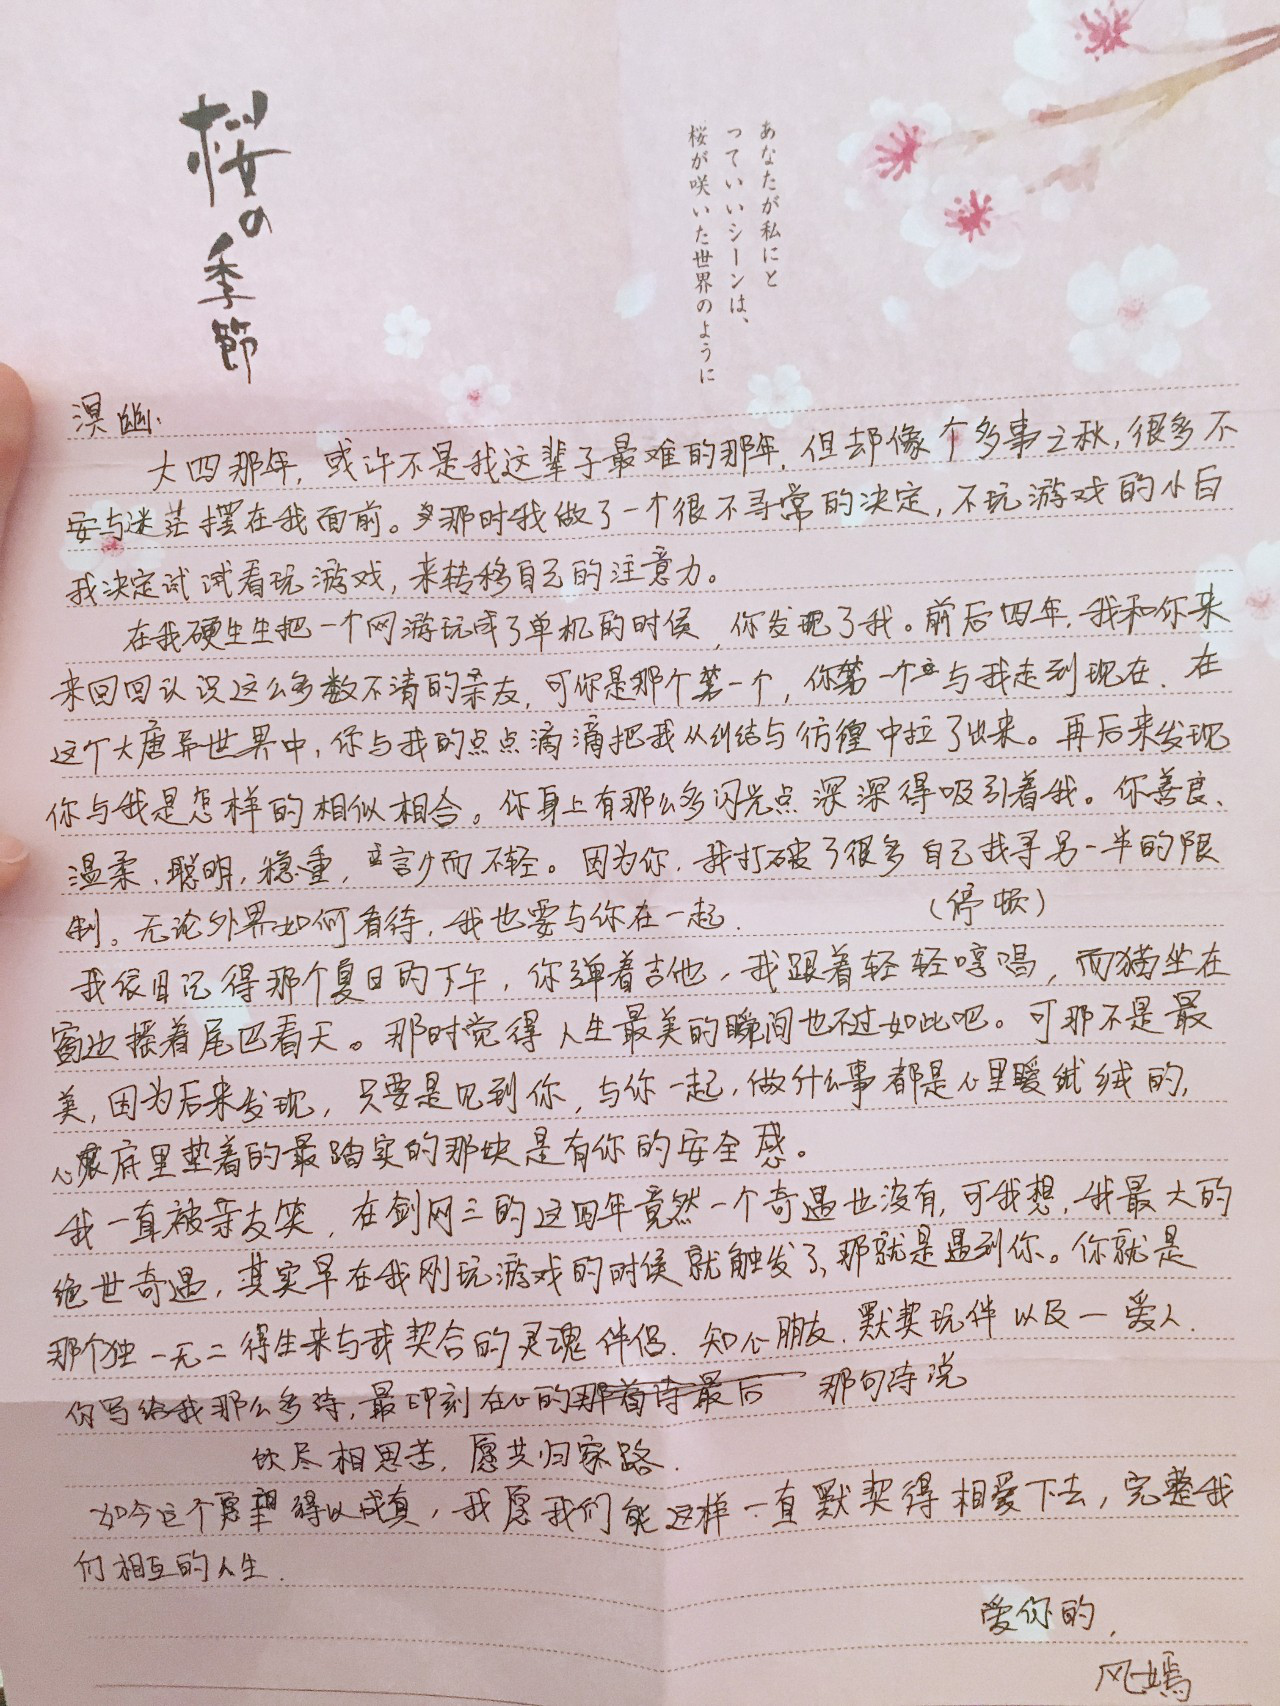 桜の季節
あなたが私にと
っていいシーンは、
桜が咲いた世界のように
溟幽:
大四那年，或许不是我这辈子最难的那年，但却像个多事之秋，很多不
安与迷茫摆在我面前。那时我做了一个很不寻常的决定，不玩游戏的小白
我决定试试看玩游戏，来转移自己的注意力。
在我硬生生把一个网游玩成了单机的时候，你发现了我。前后四年，我和你来
来回回认识这么多数不清的亲友，可你是那个第一个，你第一个与我走到现在、在
这个大唐异世界中，你与我的点点滴滴把我从纠结与彷徨中拉了出来。再后来发现
你与我是怎样的相似相合。你身上有那么多闪光点深深得吸引着我。你善良、
温柔、聪明，稳重，言少而不轻。因为你，我打破了很多自己找寻另一半的限
制。无论外界如何看待，我也要与你在一起. （停顿）
我依旧记得那个夏日的下午，你弹着吉他，我跟着轻轻哼唱，而猫坐在
窗边摇着尾巴看天。那时觉得人生最美的瞬间也不过如此吧。可那不是最
美，因为后来发现，只要是见到你，与你一起，做什么事都是心里暖绒绒的，
心底里垫着的最踏实的那块是有你的安全感。
我一直被亲友笑，在剑网三的这四年竟然一个奇遇也没有，可我想，我最大的
绝世奇遇，其实早在我刚玩游戏的时候就触发了，那就是遇到你。你就是
那个独一无二得生来与我契合的灵魂伴侣、知心朋友、默契玩伴以及一爱人.
你写给我那么多诗，最印刻在心的那首诗最后 那句诗说
饮尽相思苦，愿共归家路.
如今这个愿望得以成真，我愿我们能这样一直默契得相爱下去，完整我
们相互的人生.
爱你的，
风嫣